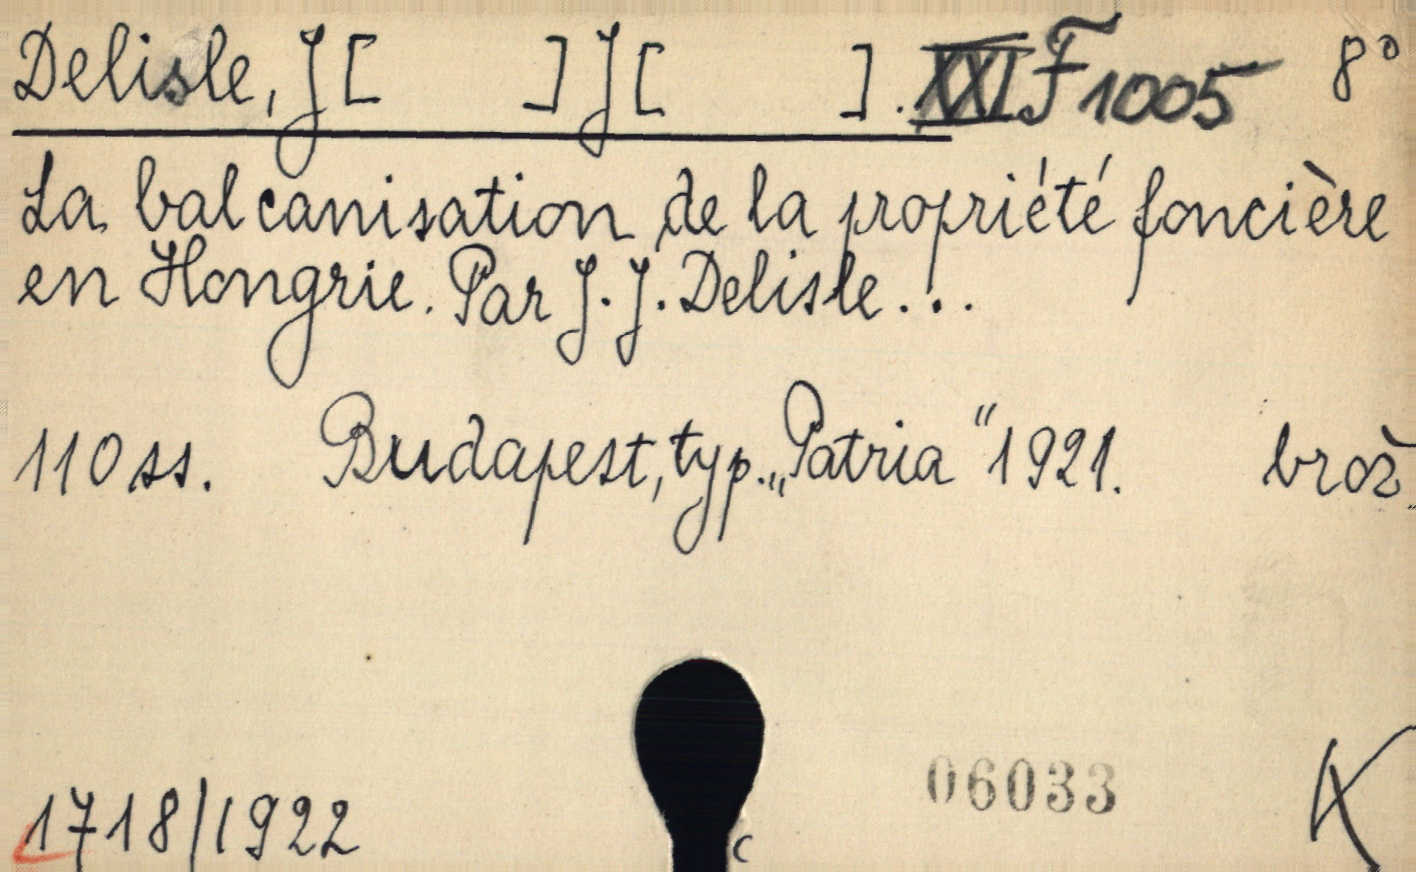 Delisle, J[ ] J[ ]. XXI F 1005 8°
La balcanisation de la propriété foncière
en Hongrie. Par J. J. Delisle...
110 ss. Budapest, typ. „Patria“ 1921. brož.
06033
1718/1922 c K